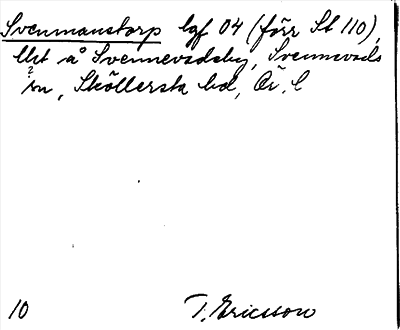 Svenmanstorp lgf 04 (förr St 110),
Urt å Svennevadsby, Svennevads
?
sn, Sköllersta hd, Ör. l
10 T. Ericsson